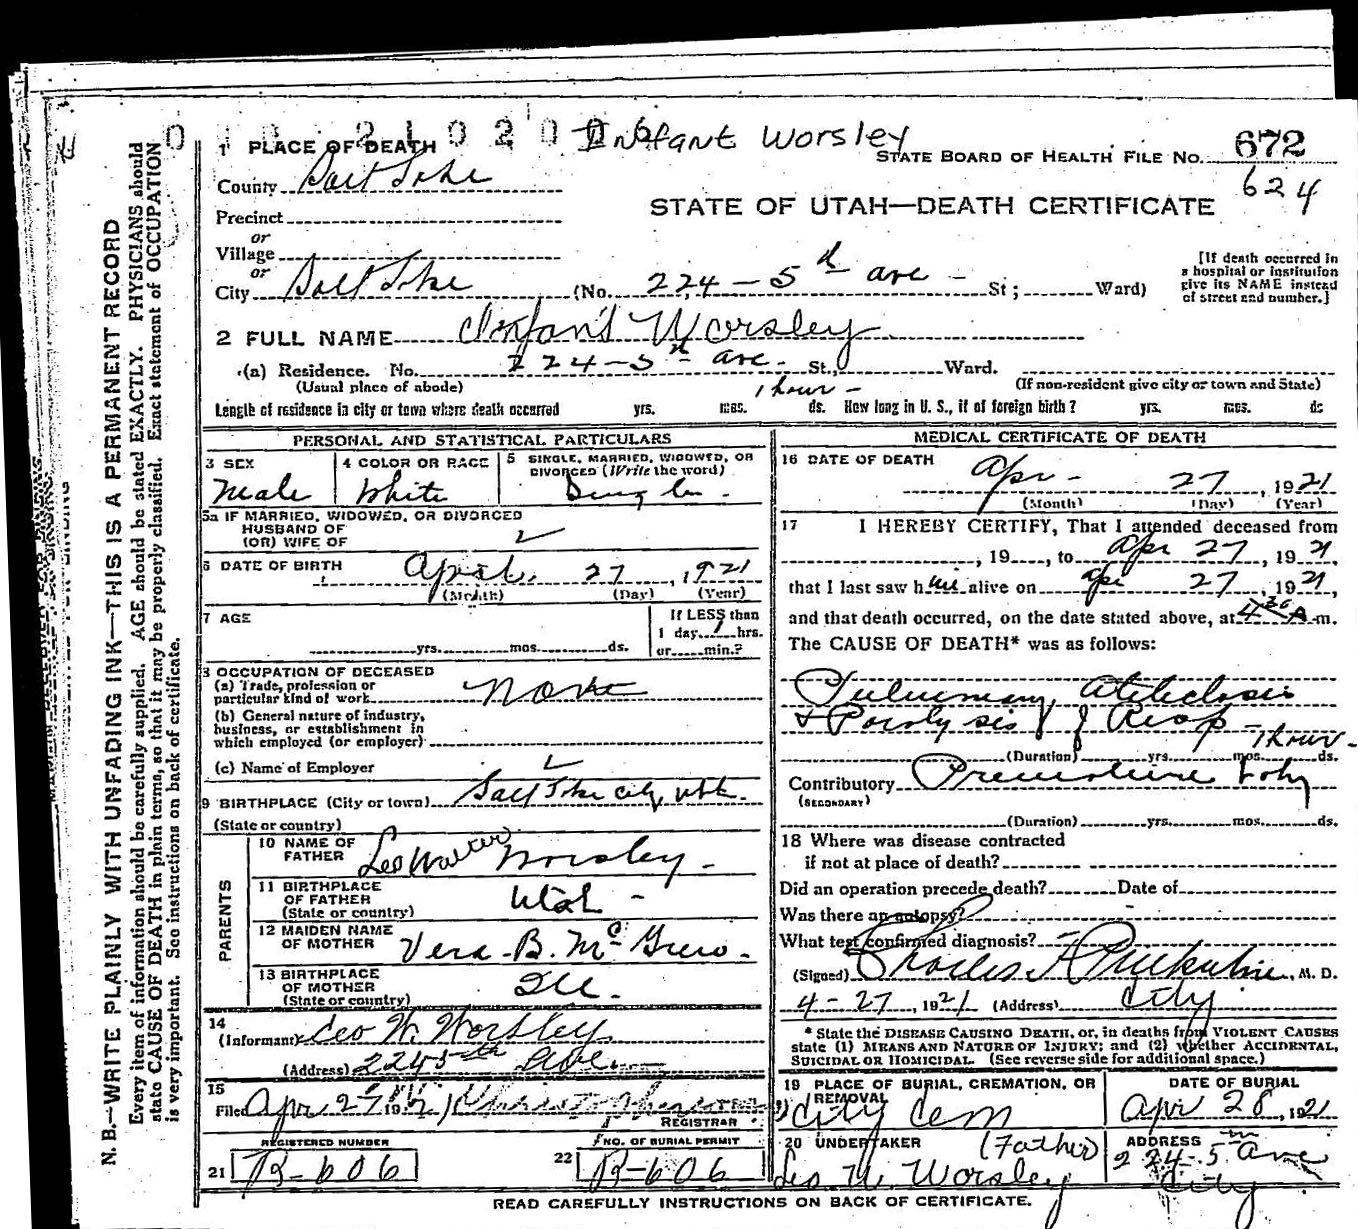 010210200
Infant Worsley
1 PLACE OF DEATH
STATE BOARD OF HEALTH FILE NO. 672
624
County Salt Lake
STATE OF UTAH—DEATH CERTIFICATE
Precinct
or
Village
or
City Salt Lake (No. 224 - 5th ave - St; Ward)
[If death occurred in
a hospital or institution
give its NAME instead
of street and number.]
2 FULL NAME Infant Worsley
(a) Residence. No. 224-5th ave. St., Ward.
(Usual place of abode)
(If non-resident give city or town and State)
1 hour -
Length of residence in city or town where death occurred yrs. mos. ds. How long in U. S., if of foreign birth? yrs. mos. ds
PERSONAL AND STATISTICAL PARTICULARS
3 SEX
Male
4 COLOR OR RACE
White
5 SINGLE, MARRIED, WIDOWED, OR
DIVORCED (Write the word)
Single.
5a IF MARRIED, WIDOWED, OR DIVORCED
HUSBAND OF
(OR) WIFE OF
6 DATE OF BIRTH April 27, 1921
(Month) (Day) (Year)
7 AGE
yrs. mos. ds.
If LESS than
1 day 1 hrs.
or min.?
8 OCCUPATION OF DECEASED
(a) Trade, profession or
particular kind of work None
(b) General nature of industry,
business, or establishment in
which employed (or employer)
(c) Name of Employer
9 BIRTHPLACE (City or town) Salt Lake City Utah.
(State or country)
PARENTS
10 NAME OF
FATHER Leo Walter Worsley -
11 BIRTHPLACE
OF FATHER
(State or country) Utah -
12 MAIDEN NAME
OF MOTHER Vera B. McGrew.
13 BIRTHPLACE
OF MOTHER
(State or country) Ill.
14
(Informant) Leo W. Worsley
(Address) 224 5th Ave
15
Filed Apr 27 1921
REGISTRAR
REGISTERED NUMBER
21 B-606
NO. OF BURIAL PERMIT
22 B-606
MEDICAL CERTIFICATE OF DEATH
16 DATE OF DEATH Apr - 27, 1921
(Month) (Day) (Year)
17 I HEREBY CERTIFY, That I attended deceased from
, 19, to Apr 27, 1921,
that I last saw him alive on Apr 27 1921,
and that death occurred, on the date stated above, at 4 30 A m.
The CAUSE OF DEATH* was as follows:
Pulmonary Atelectasis
& Paralysis of Resp -
1 hour -
(Duration) yrs. mos. ds.
Contributory Premature Baby
(SECONDARY)
(Duration) yrs. mos. ds.
18 Where was disease contracted
if not at place of death?
Did an operation precede death? Date of
Was there an autopsy?
What test confirmed diagnosis?
(Signed) Charles, M. D.
4-27, 1921 (Address) City
* State the DISEASE CAUSING DEATH, or, in deaths from VIOLENT CAUSES
state (1) MEANS AND NATURE OF INJURY; and (2) whether ACCIDENTAL,
SUICIDAL OR HOMICIDAL. (See reverse side for additional space.)
19 PLACE OF BURIAL, CREMATION, OR
REMOVAL
City Cem
DATE OF BURIAL
Apr 28, 1921
20 UNDERTAKER (Father)
Leo W. Worsley
ADDRESS
224-5th ave
City
READ CAREFULLY INSTRUCTIONS ON BACK OF CERTIFICATE.
N. B.—WRITE PLAINLY WITH UNFADING INK—THIS IS A PERMANENT RECORD
Every item of information should be carefully supplied. AGE should be stated EXACTLY. PHYSICIANS should
state CAUSE OF DEATH in plain terms, so that it may be properly classified. Exact statement of OCCUPATION
is very important. See instructions on back of certificate.